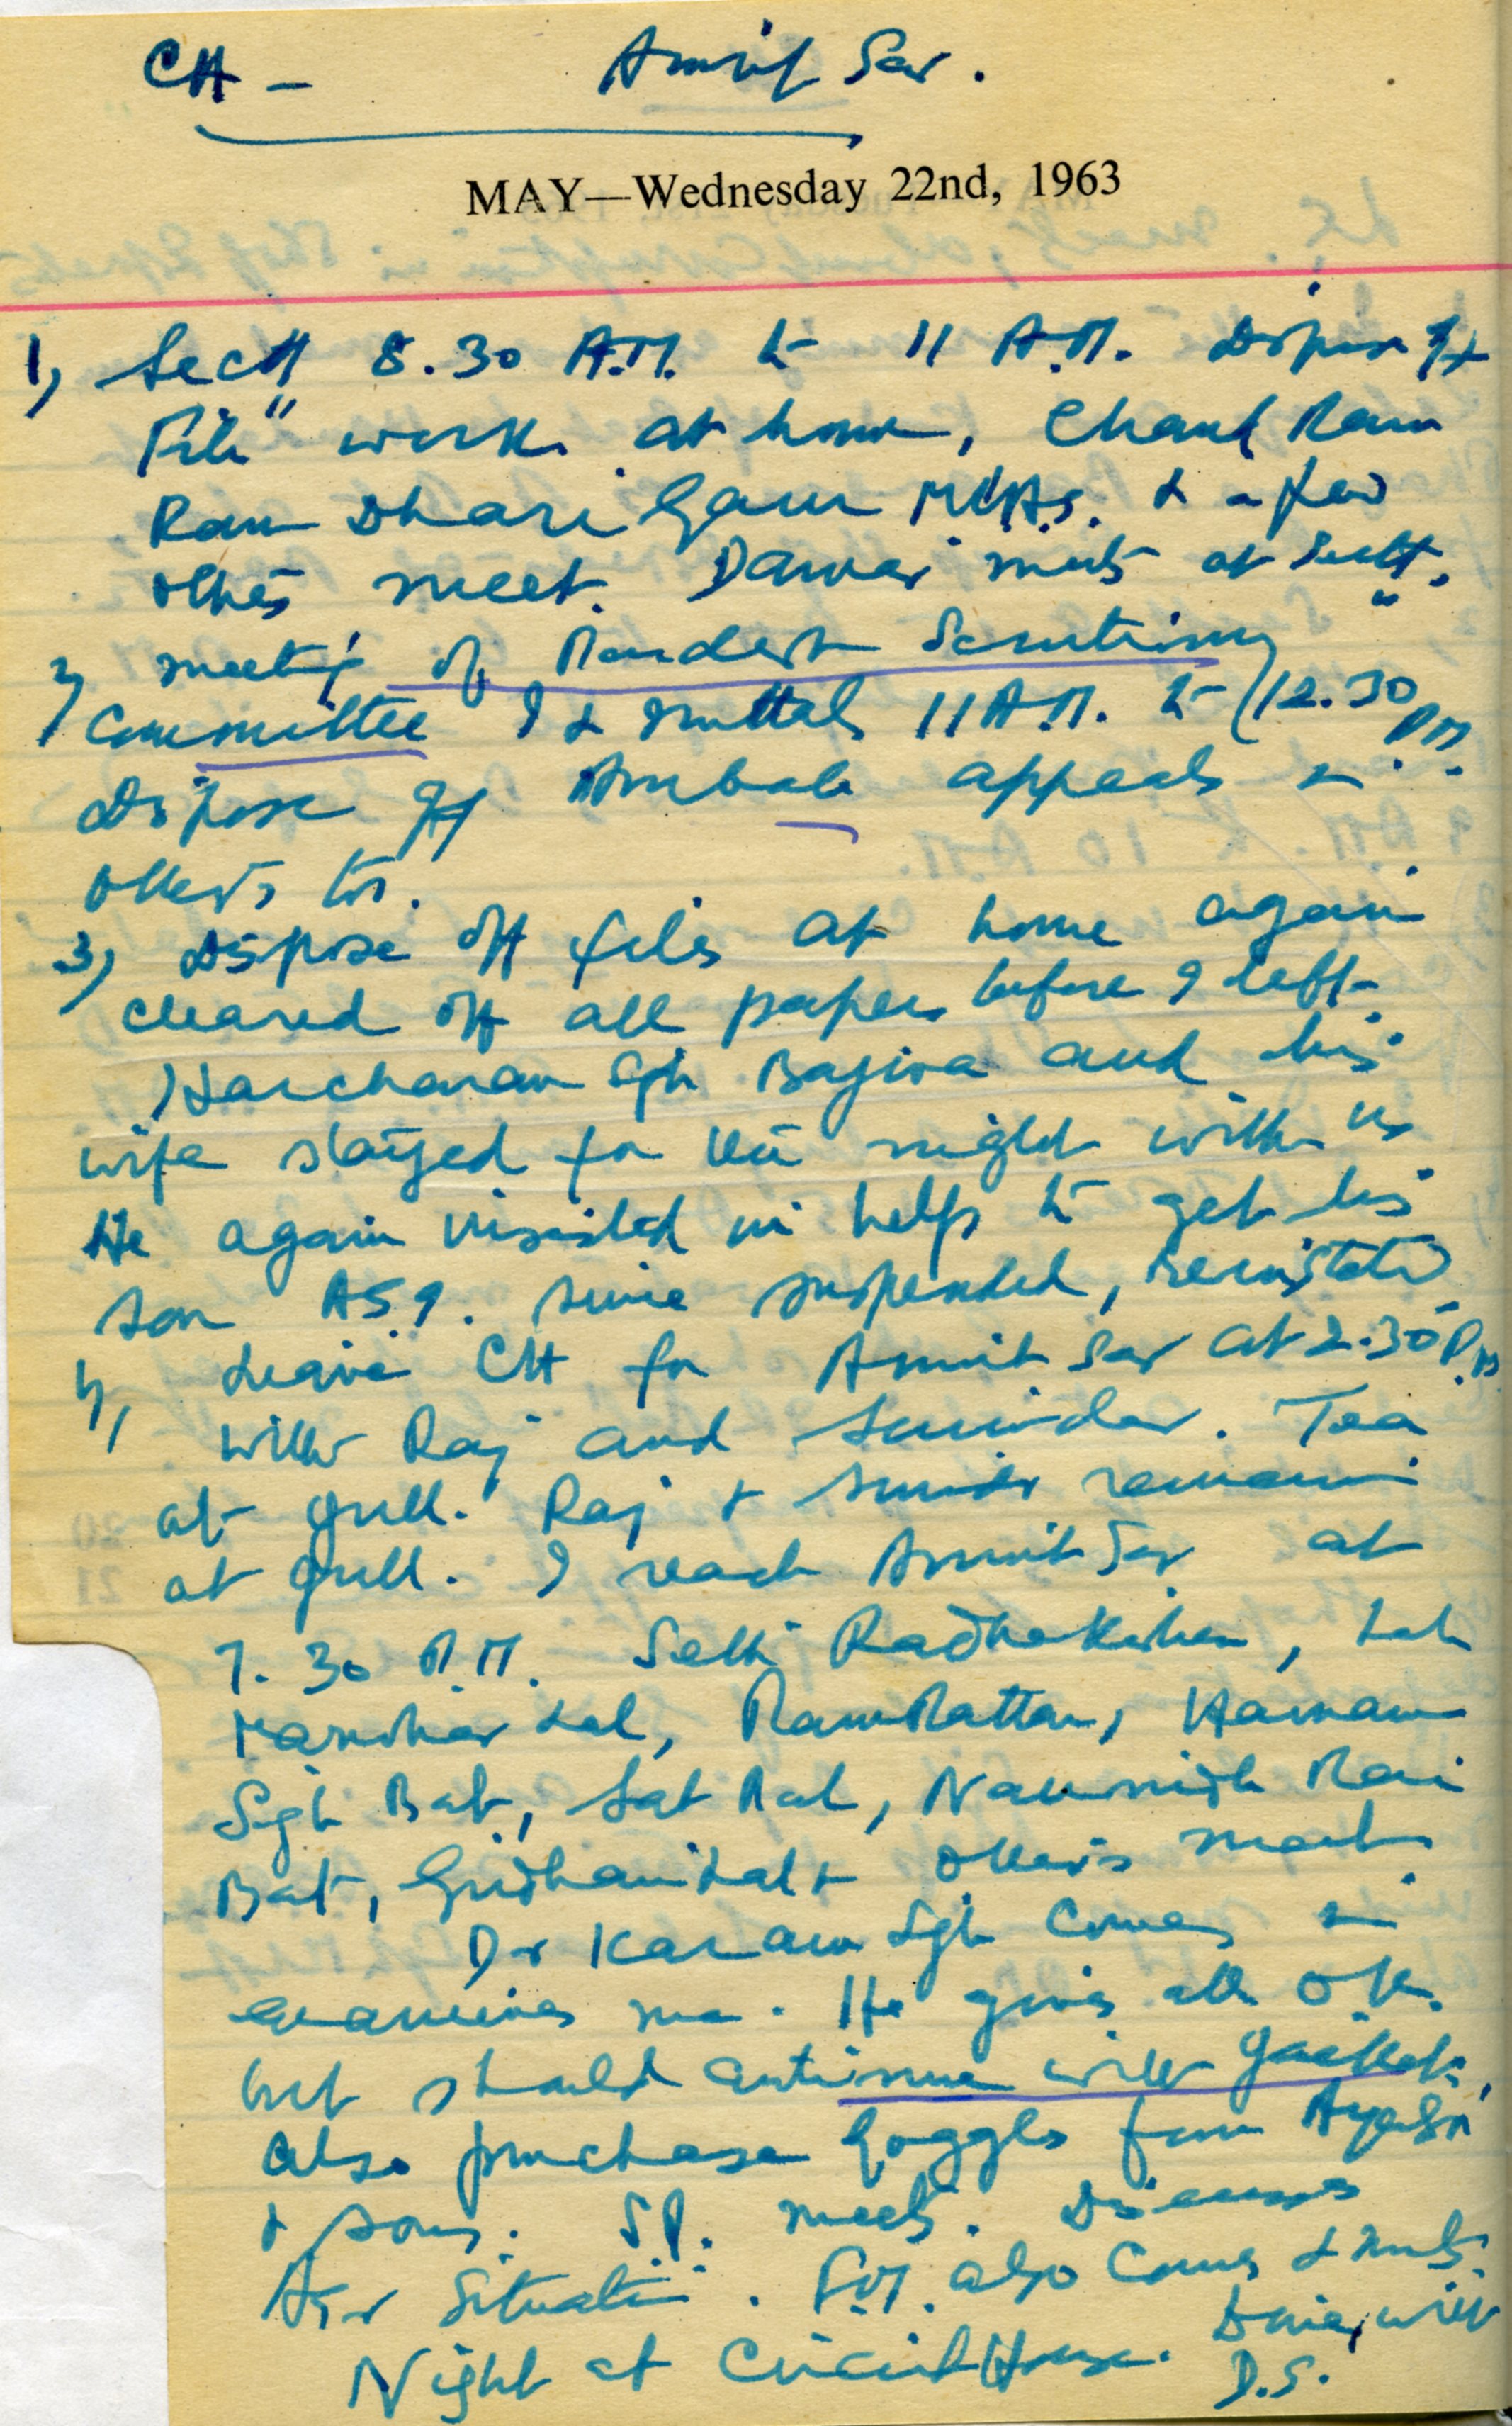 CH - Amrit Sar.
MAY—Wednesday 22nd, 1963
1) Sectt 8.30 A.M. to 11 A.M. Dispose off
File work at home, Chand Ram
Ram Dhari Gaur MLAs. & a few
others meet. meets at Sectt.
2) meeting of Scrutiny
Committee I & Mittal 11 A.M. to 12.30 PM.
Dispose off Ambala appeals &
others too.
3) Dispose off files at home again
cleared off all papers before I left.
Harcharan Sgh Bajwa and his
wife stayed for the night with us
He again in help to get his
son ASI. since suspended, reinstated
4, Leave CH for Amrit Sar at 2.30 P.M.
with Raj and Surinder. Tea
at Jull. Raj & Surinder remain
at Jull. I reach Amrit Sar at
7.30 P.M. Seth Radhakishen, Lala
Manohar Lal, Ram Rattan, Harnam
Sgh Bat, Sat Pal, Naunidh Rai
Bat, Girdhari Lal & others meet.
Dr Karam Sgh comes &
examines me. He gives all O.K.
but should continue with
also purchase Goggles from
& Sons. S.P. meets. Discuss
Asr Situation. also comes & meets.
Night at Circuit House. Dine, with
D.S.